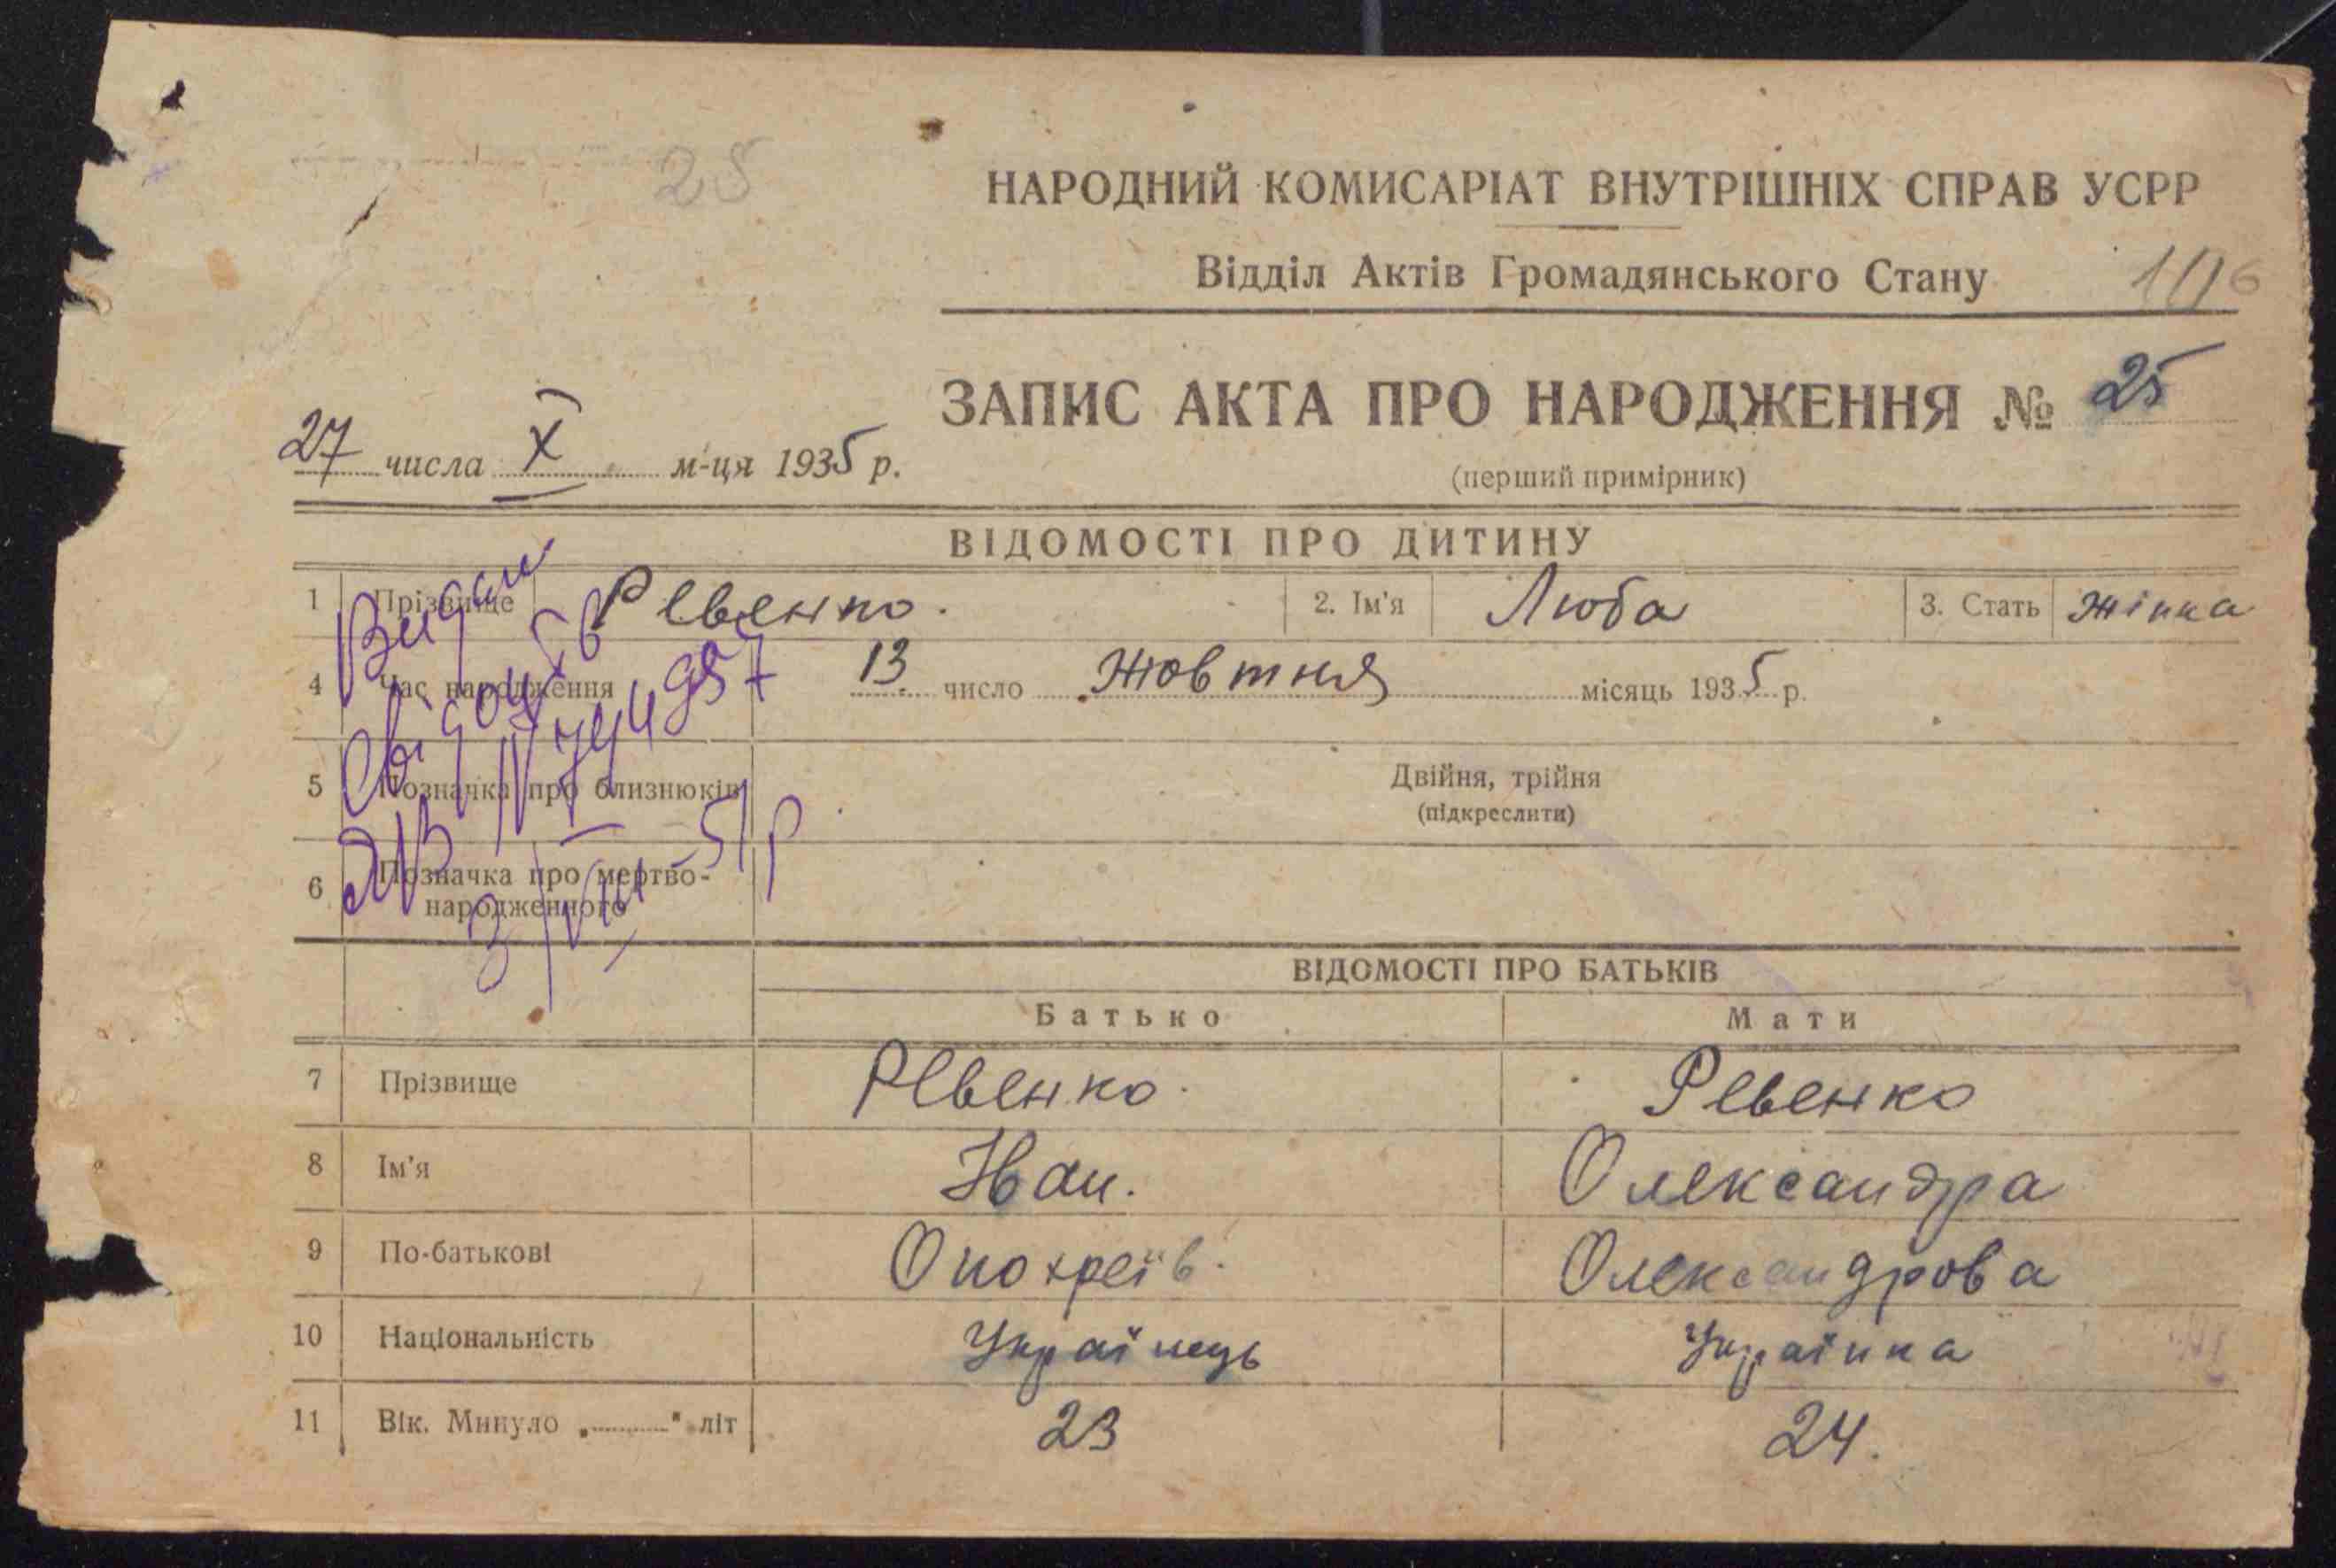 25
НАРОДНИЙ КОМИСАРІАТ ВНУТРІШНІХ СПРАВ УСРР
Відділ Актів Громадянського Стану
ЗАПИС АКТА ПРО НАРОДЖЕННЯ № 25
27 числа X м-ця 1935 р.
(перший примірник)
ВІДОМОСТІ ПРО ДИТИНУ
1 Прізвище Ревенко. 2. Ім'я Люба 3. Стать жінка
4 Час народження 13 число жовтня місяць 1935 р.
5 Позначка про близнюків Двійня, трійня
(підкреслити)
6 Позначка про мертво-
народженного
ВІДОМОСТІ ПРО БАТЬКІВ
Батько Мати
7 Прізвище Ревенко. Ревенко
8 Ім'я Іван. Олександра
9 По-батькові Олександрова
10 Національність Українець Українка
11 Вік. Минуло „ " літ 23 24.